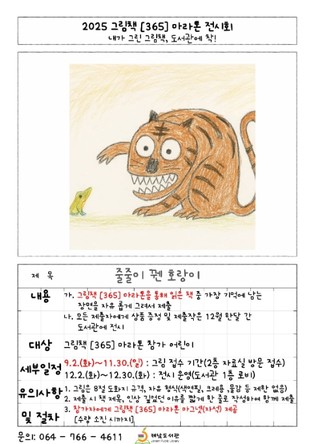 2025 그림책 [365] 마라톤 전시회
내가 그린 그림책, 도서관에 착!
제 목
줄줄이 꿴 호랑이
내용
가. 그림책 [365] 마라톤을 통해 읽은 책 중 가장 기억에 남는
장면을 자유 롭게 그려서 제출
나. 모든 제출자에게 상품 증정 및 제출작은 12월 한달 간
도서관에 전시
대상
그림책 [365] 마라톤 참가 어린이
세부일정
9.2.(화)~11.30.(일) : 그림 접수 기간(2층 자료실 방문 접수)
12.2.(화)~12.30.(화) : 전시 운영(도서관 1층 로비)
유의사항
및 절차
1. 그림은 8절 도화지 규격, 자유 형식(색연필, 크레용, 물감 등 제한 없음)
2. 제출 시 책 제목, 인상 깊었던 이유를 짧게 한 줄로 작성하여 함께 제출
3. 참가자에게 그림책 [365] 마라톤 마그넷(자석) 제공
[수량 소진 시까지]
문의: 064 - 766 - 4611